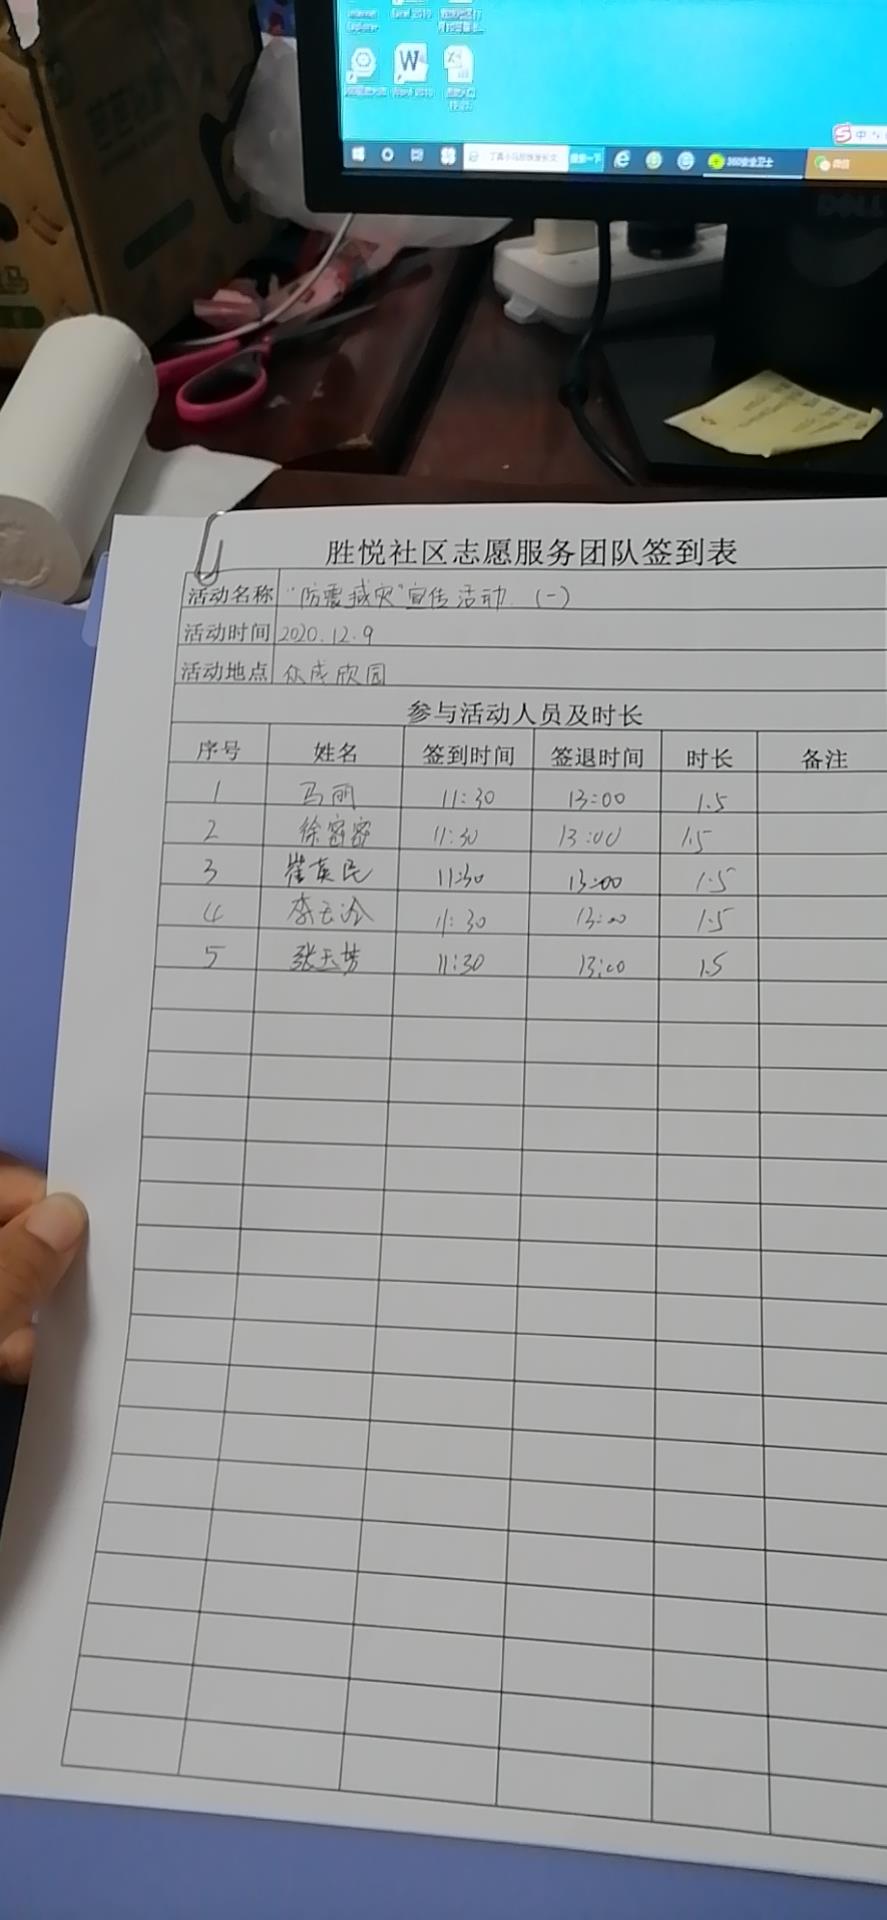 Internet Explorer
Excel 2010
Word 2010
360安全卫士
微信
DELL
胜悦社区志愿服务团队签到表
活动名称 "防震减灾"宣传活动.(一)
活动时间 2020.12.9
活动地点 众成欣园
参与活动人员及时长
序号 姓名 签到时间 签退时间 时长 备注
1 马丽 11:30 13:00 1.5
2 徐密密 11:30 13:00 1.5
3 崔英民 11:30 13:00 1.5
4 李玉冷 11:30 13:00 1.5
5 张玉芳 11:30 13:00 1.5